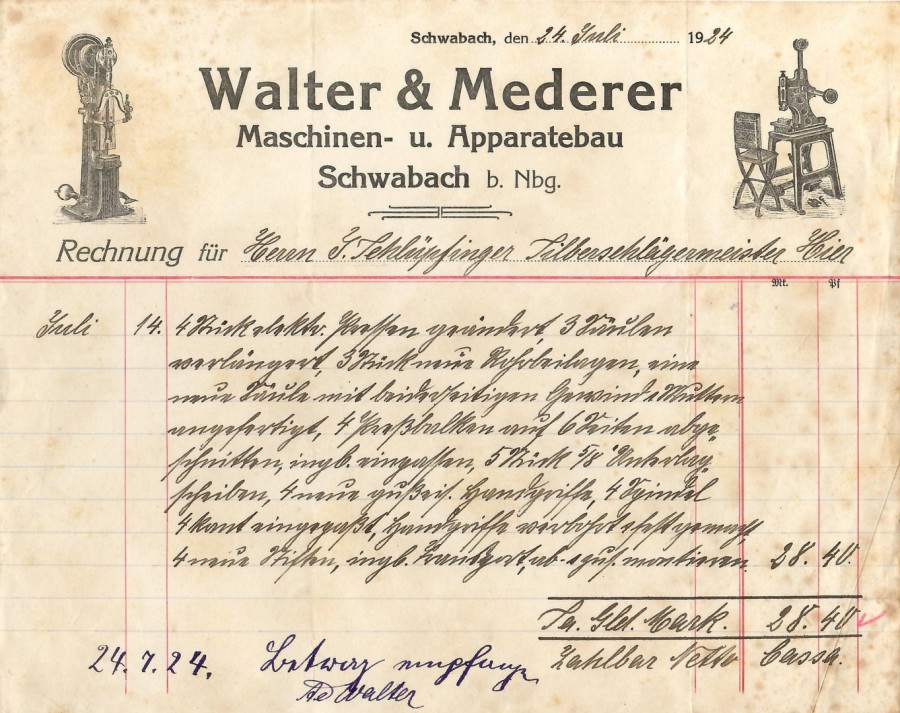 Schwabach, den 24. Juli 1924
Walter & Mederer
Maschinen- u. Apparatebau
Schwabach b. Nbg.
Rechnung für Herrn J. Schlüpfinger Silberschlägermeister Hier
Mk. Pf
Juli 14. 4 Stück elektr. Pressen geändert, 3 Säulen
verlängert, 3 Stück neue Rohrbeilagen, eine
neue Säule mit beiderseitigen Gewind & Muttern
angefertigt, 4 Preßbalken auf 6 Seiten abge-
schnitten, eingepassen, 5 Stück 5/8" Unterlag
scheiben, 4 neue gußeis. Handgriffe, 4 Spindel
4 kant eingepaßt, Handgriffe verbohrt & fest gemacht,
4 neue Stiften, Transport, ab- & montieren. 28. 40.
Sa. Gld. Mark. 28. 40
Zahlbar Netto Cassa.
24. 7. 24. Betrag empfangen
Walter